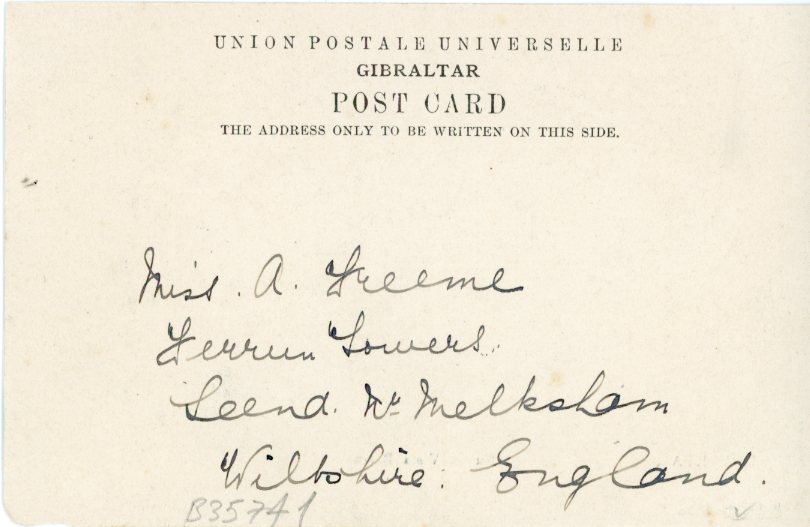 UNION POSTALE UNIVERSELLE
GIBRALTAR
POST CARD
THE ADDRESS ONLY TO BE WRITTEN ON THIS SIDE.
Miss. A. Freeme
Ferrum Towers.
Seend. Nr Melksham
Wiltshire. England.
B35741